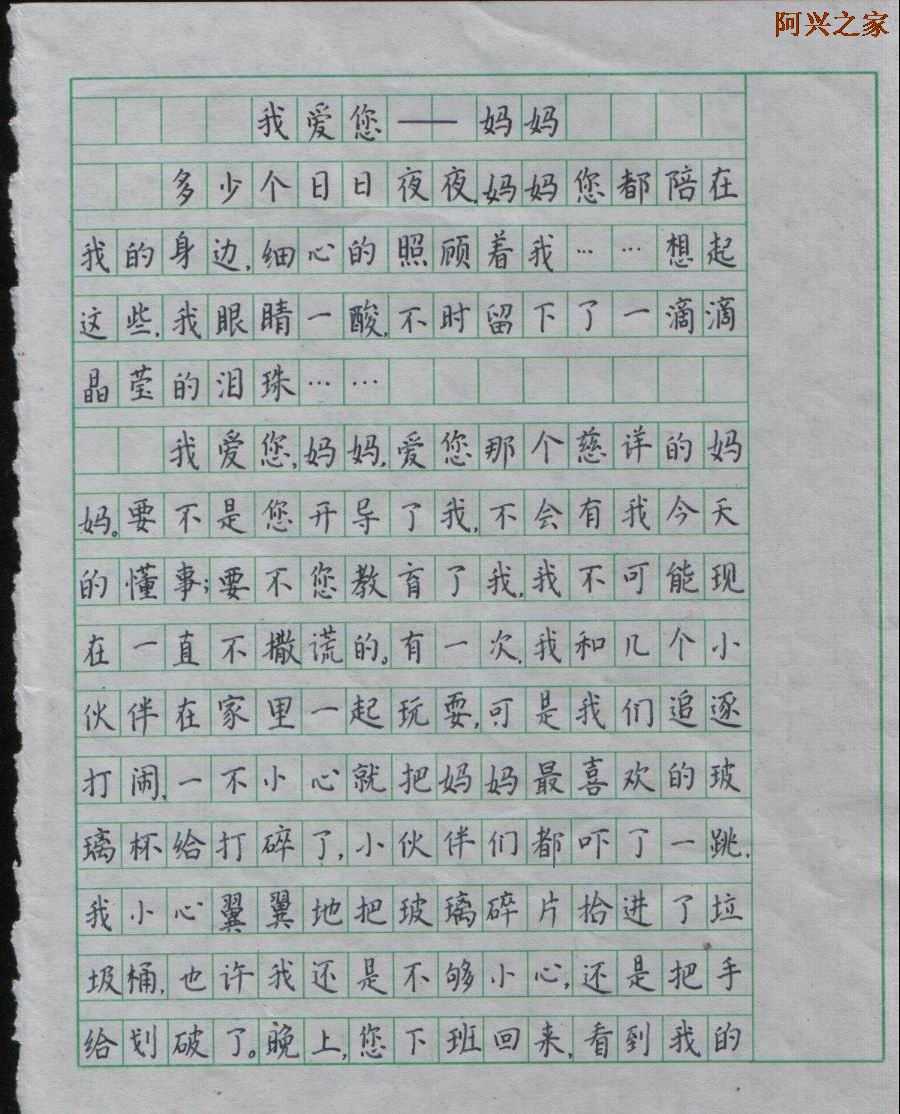 阿兴之家
我爱您——妈妈
多少个日日夜夜,妈妈您都陪在
我的身边,细心的照顾着我……想起
这些,我眼睛一酸,不时留下了一滴滴
晶莹的泪珠……
我爱您,妈妈,爱您那个慈详的妈
妈。要不是您开导了我,不会有我今天
的懂事;要不您教育了我,我不可能现
在一直不撒谎的。有一次,我和几个小
伙伴在家里一起玩耍,可是我们追逐
打闹,一不小心就把妈妈最喜欢的玻
璃杯给打碎了,小伙伴们都吓了一跳,
我小心翼翼地把玻璃碎片拾进了垃
圾桶,也许我还是不够小心,还是把手
给划破了。晚上,您下班回来,看到我的